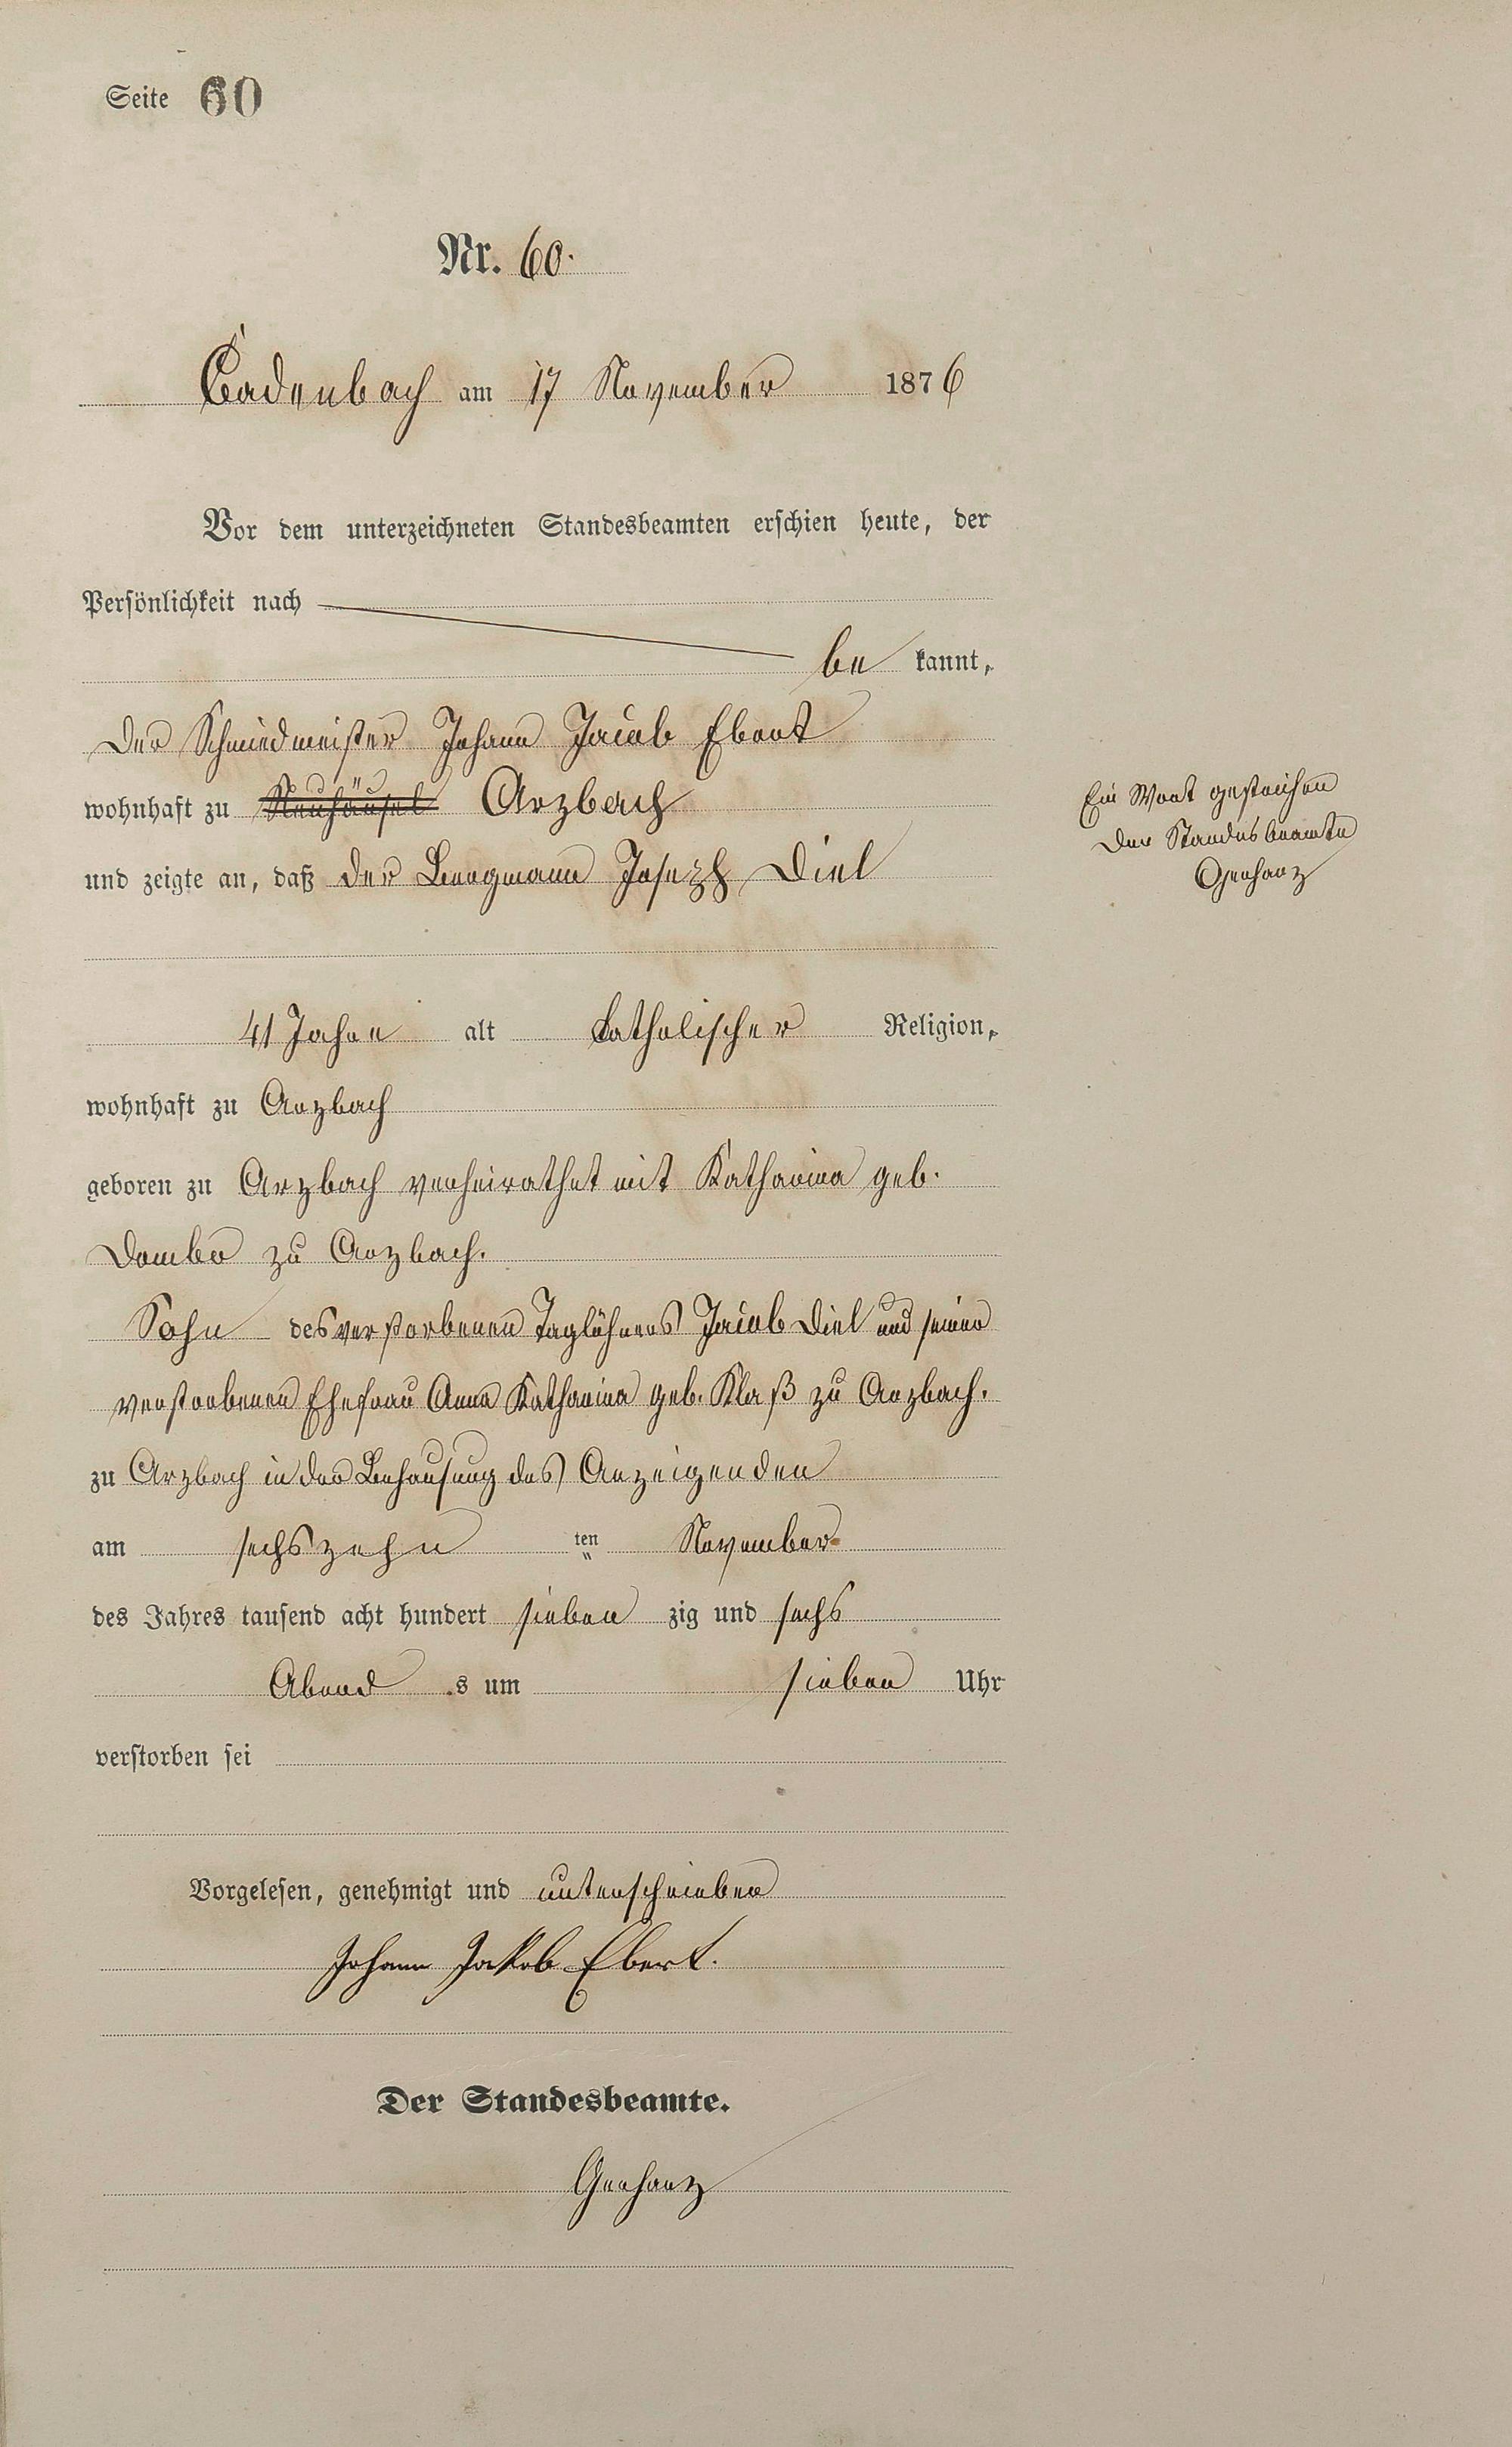 Seite 60
Nr. 60.
Cadenbach am 17 November 1876
Vor dem unterzeichneten Standesbeamten erschien heute, der
Persönlichkeit nach
be kannt,
der Schmiedmeister Johann Jacob Ebert
wohnhaft zu Neuhäusel Arzbach
Ein Wort gestrichen
Der Standesbeamte
Gerharz
und zeigte an, daß der Bergmann Joseph Diel
41 Jahre alt katholischer Religion,
wohnhaft zu Arzbach
geboren zu Arzbach verheirathet mit Katharina geb.
Dombo zu Arzbach.
Sohn des verstorbenen Taglöhners Jacob Diel und seiner
verstorbenen Ehefrau Anna Katharina geb. Klaß zu Arzbach.
zu Arzbach in der Behausung des Anzeigenden
am sechszehn ten November
des Jahres tausend acht hundert sieben zig und sechs
Abend s um sieben Uhr
verstorben sei
Vorgelesen, genehmigt und unterschrieben
Johann Jakob Ebert.
Der Standesbeamte.
Gerharz